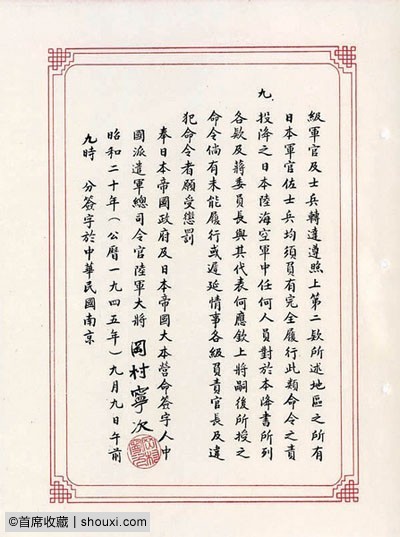 級軍官及士兵轉達遵照上第二欵所述地區之所有
日本軍官佐士兵均須負有完全履行此類命令之責
九、投降之日本陸海空軍中任何人員對於本降書所列
各欵及蔣委員長與其代表何應欽上將嗣後所授之
命令倘有未能履行或遲延情事各級負責官長及違
犯命令者願受懲罰
奉日本帝國政府及日本帝國大本營命簽字人中
國派遣軍總司令官陸軍大將 岡村寧次
昭和二十年(公曆一九四五年)九月九日午前
九時 分簽字於中華民國南京
@首席收藏 | shouxi.com